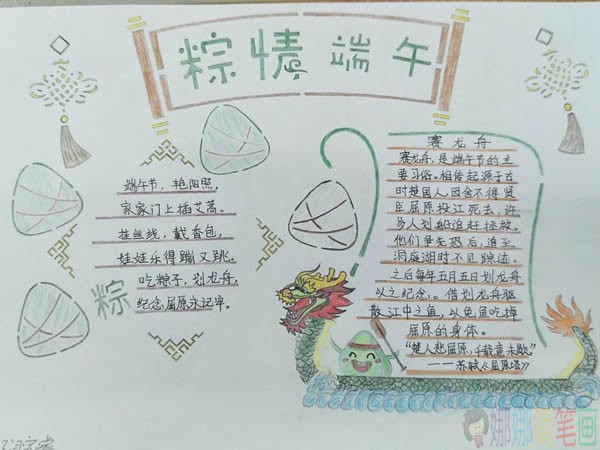 粽情端午
端午节，艳阳照，
家家门上插艾蒿。
挂丝线，戴香包，
娃娃乐得蹦又跳。
吃粽子，划龙舟，
纪念屈原永记牢。
粽
赛龙舟
赛龙舟，是端午节的主
要习俗。相传起源于古
时楚国人因舍不得贤
臣屈原投江死去，许
多人划船追赶拯救。
他们争先恐后，追至
洞庭湖时不见踪迹。
之后每年五月五日划龙舟
以之纪念。借划龙舟驱
散江中之鱼，以免鱼吃掉
屈原的身体。
“楚人悲屈原，千载意未歇”
——苏轼《屈原塔》
娜娜简笔画